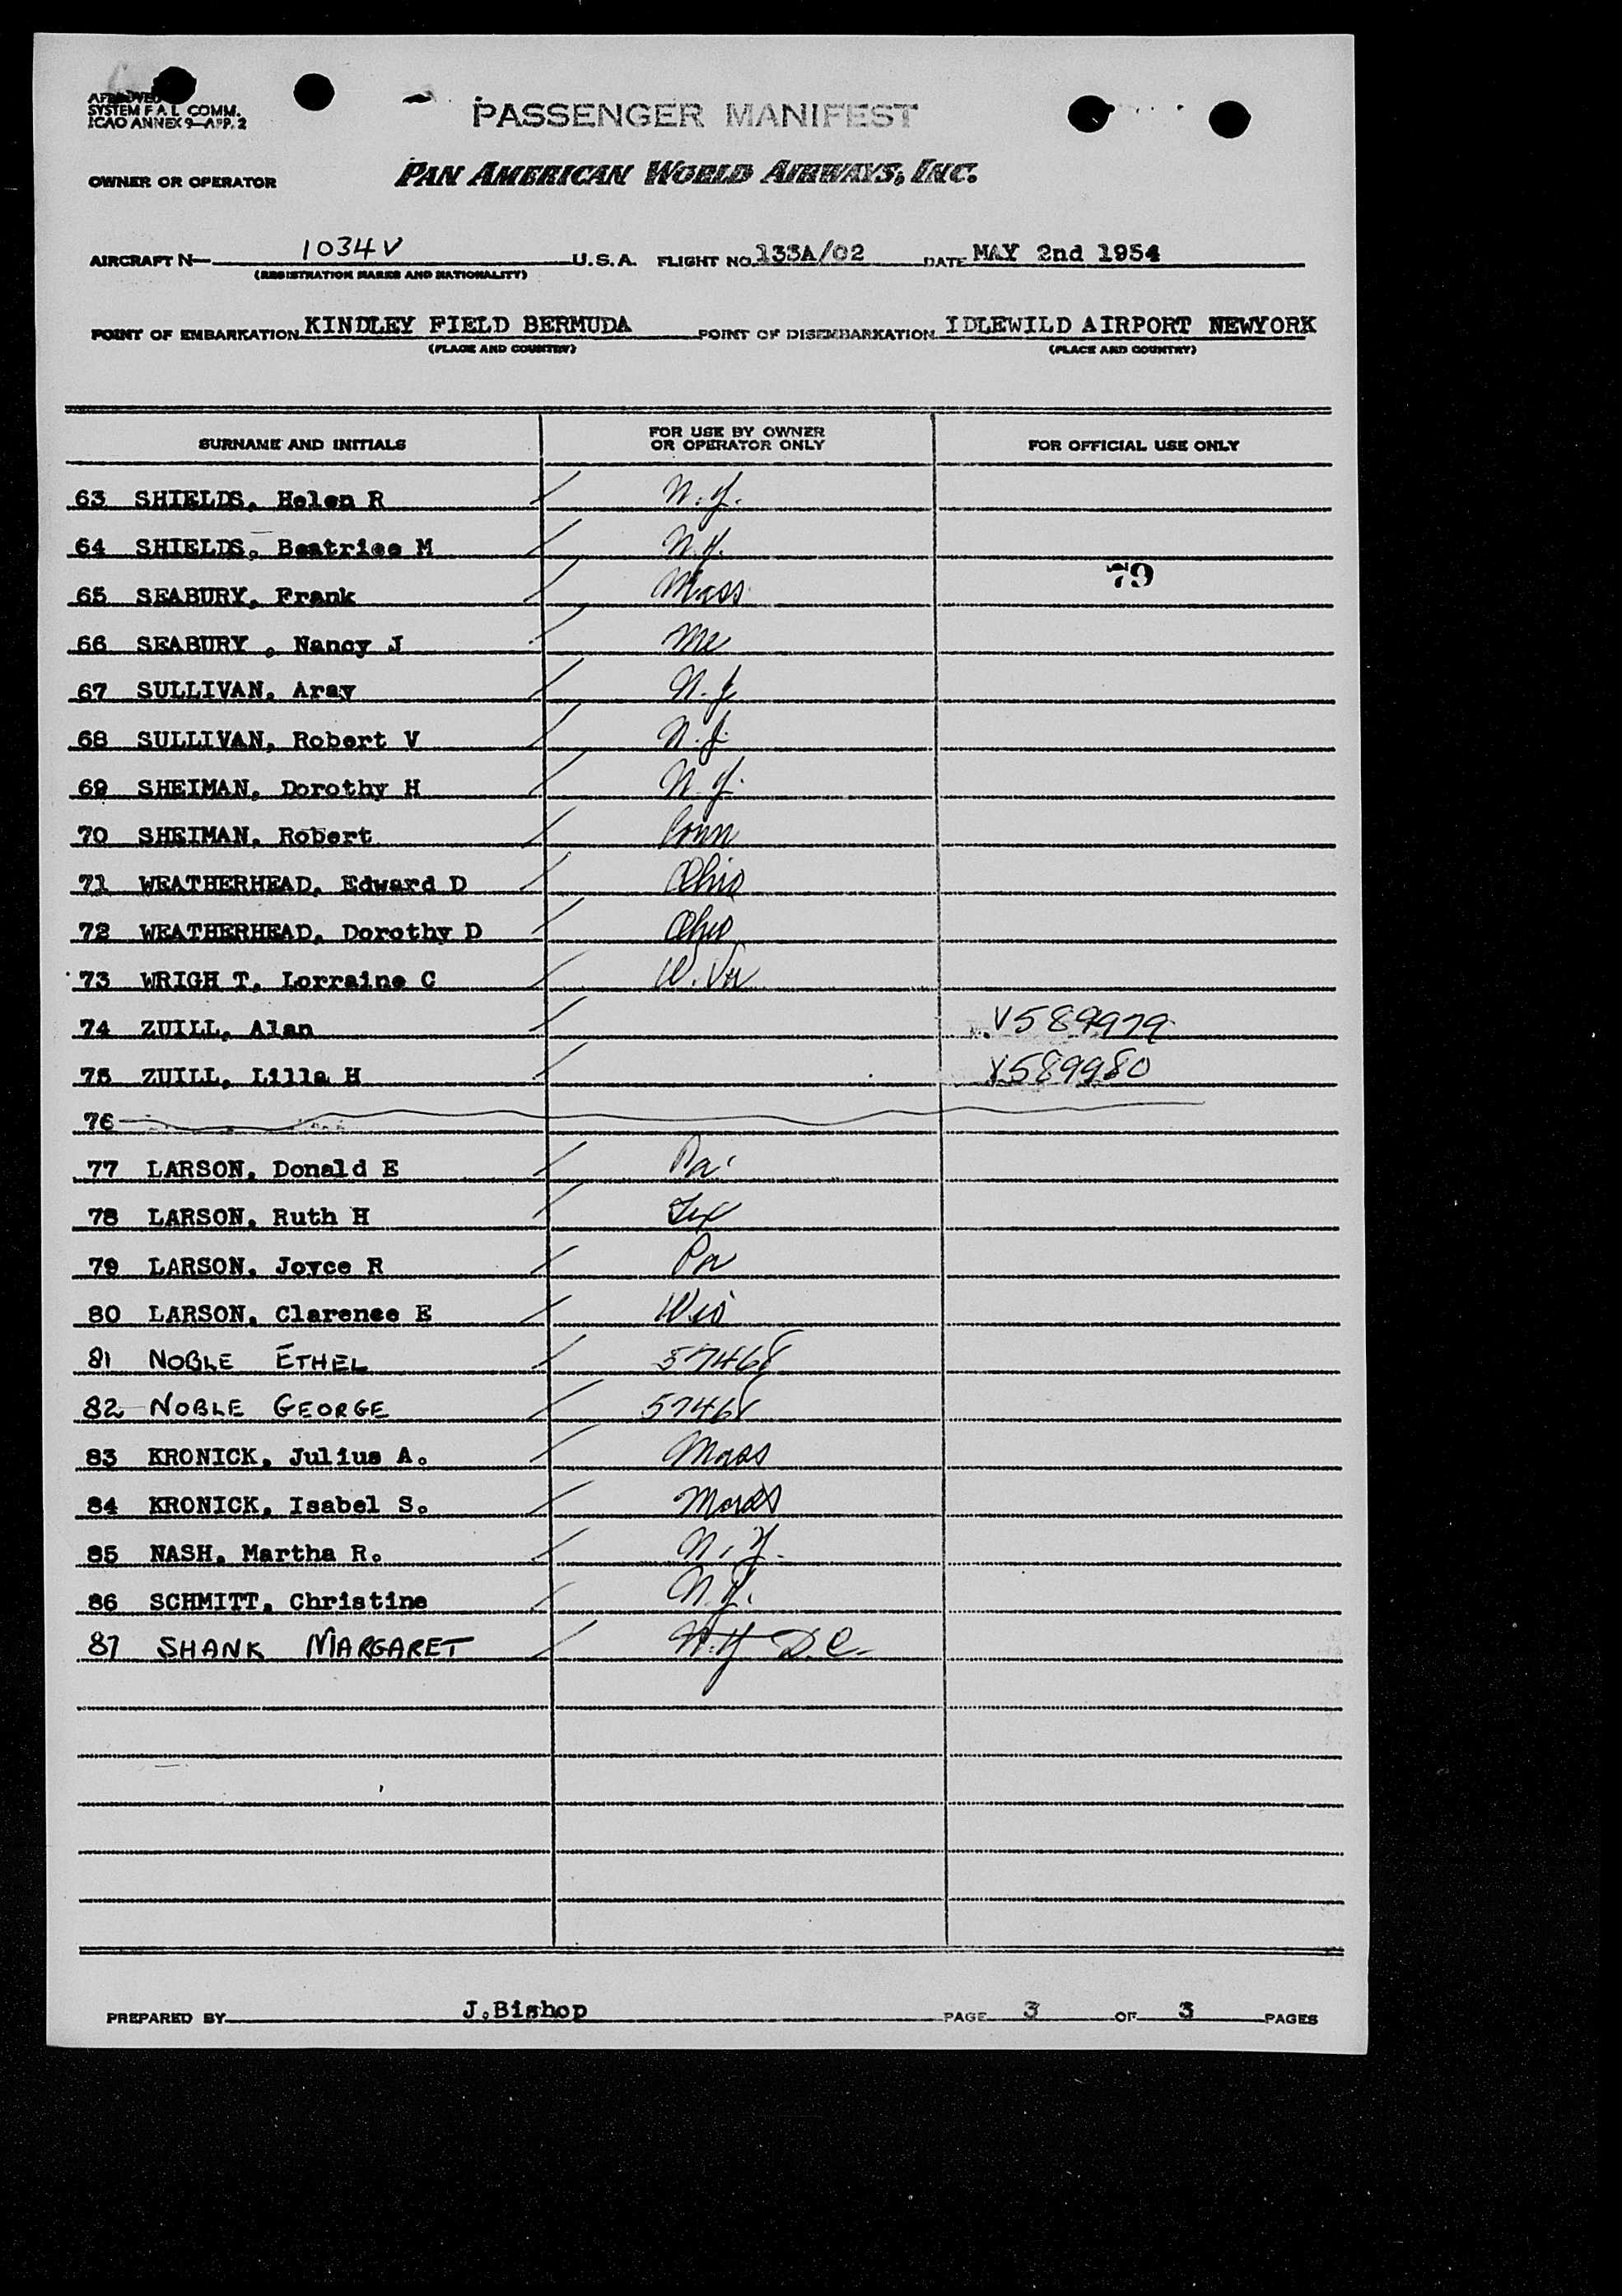 APPROVED
SYSTEM F A L COMM.
ICAO ANNEX 9—APP. 2
PASSENGER MANIFEST
OWNER OR OPERATOR PAN AMERICAN WORLD AIRWAYS, INC.
AIRCRAFT N— 1034V U.S.A. FLIGHT NO. 133A/02 DATE MAY 2nd 1954
(REGISTRATION MARKS AND NATIONALITY)
POINT OF EMBARKATION KINDLEY FIELD BERMUDA POINT OF DISEMBARKATION IDLEWILD AIRPORT NEWYORK
(PLACE AND COUNTRY) (PLACE AND COUNTRY)
SURNAME AND INITIALS FOR USE BY OWNER OR OPERATOR ONLY FOR OFFICIAL USE ONLY
63 SHIELDS, Helen R N.Y.
64 SHIELDS, Beatrice M N.Y.
65 SEABURY, Frank Mass 79
66 SEABURY , Nancy J Me
67 SULLIVAN, Aray N.J
68 SULLIVAN, Robert V N.J.
69 SHEIMAN, Dorothy H N.Y.
70 SHEIMAN, Robert Conn
71 WEATHERHEAD, Edward D Ohio
72 WEATHERHEAD, Dorothy D Ohio
73 WRIGH T, Lorraine C W. Va
74 ZUILL, Alan V589979
75 ZUILL, Lilla H V589980
76
77 LARSON, Donald E Pa.
78 LARSON, Ruth H Tex
79 LARSON, Joyce R Pa
80 LARSON, Clarence E Wis
81 NOBLE ETHEL 57468
82 NOBLE GEORGE 57468
83 KRONICK, Julius A. Mass
84 KRONICK, Isabel S. Mass
85 NASH, Martha R. N.Y.
86 SCHMITT, Christine N.Y.
87 SHANK MARGARET N.Y D.C.
PREPARED BY J.Bishop PAGE 3 OF 3 PAGES